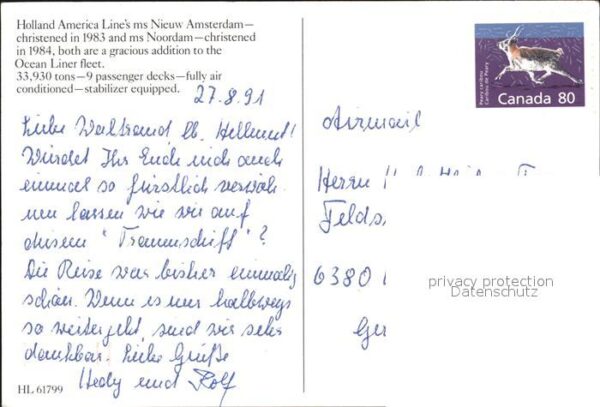 Holland America Line's ms Nieuw Amsterdam—
christened in 1983 and ms Noordam—christened
in 1984, both are a gracious addition to the
Ocean Liner fleet.
33,930 tons—9 passenger decks—fully air
conditioned—stabilizer equipped.
27.8.91
Liebe Waltraud lb. Hellmut!
Würdet Ihr Euch nich auch
einmal so fürstlich verwöh
nen lassen wie wir auf
diesem "Traumschiff"?
Die Reise war bisher einmalig
schön. Wenn es nur halbwegs
so weitergeht sind wir sehr
dankbar. Liebe Grüße
Hedy und Rolf
HL 61799
Peary caribou
Caribou de Peary
Canada 80
Airmail
Herrn
Felds
6380
Ger
privacy protection
Datenschutz